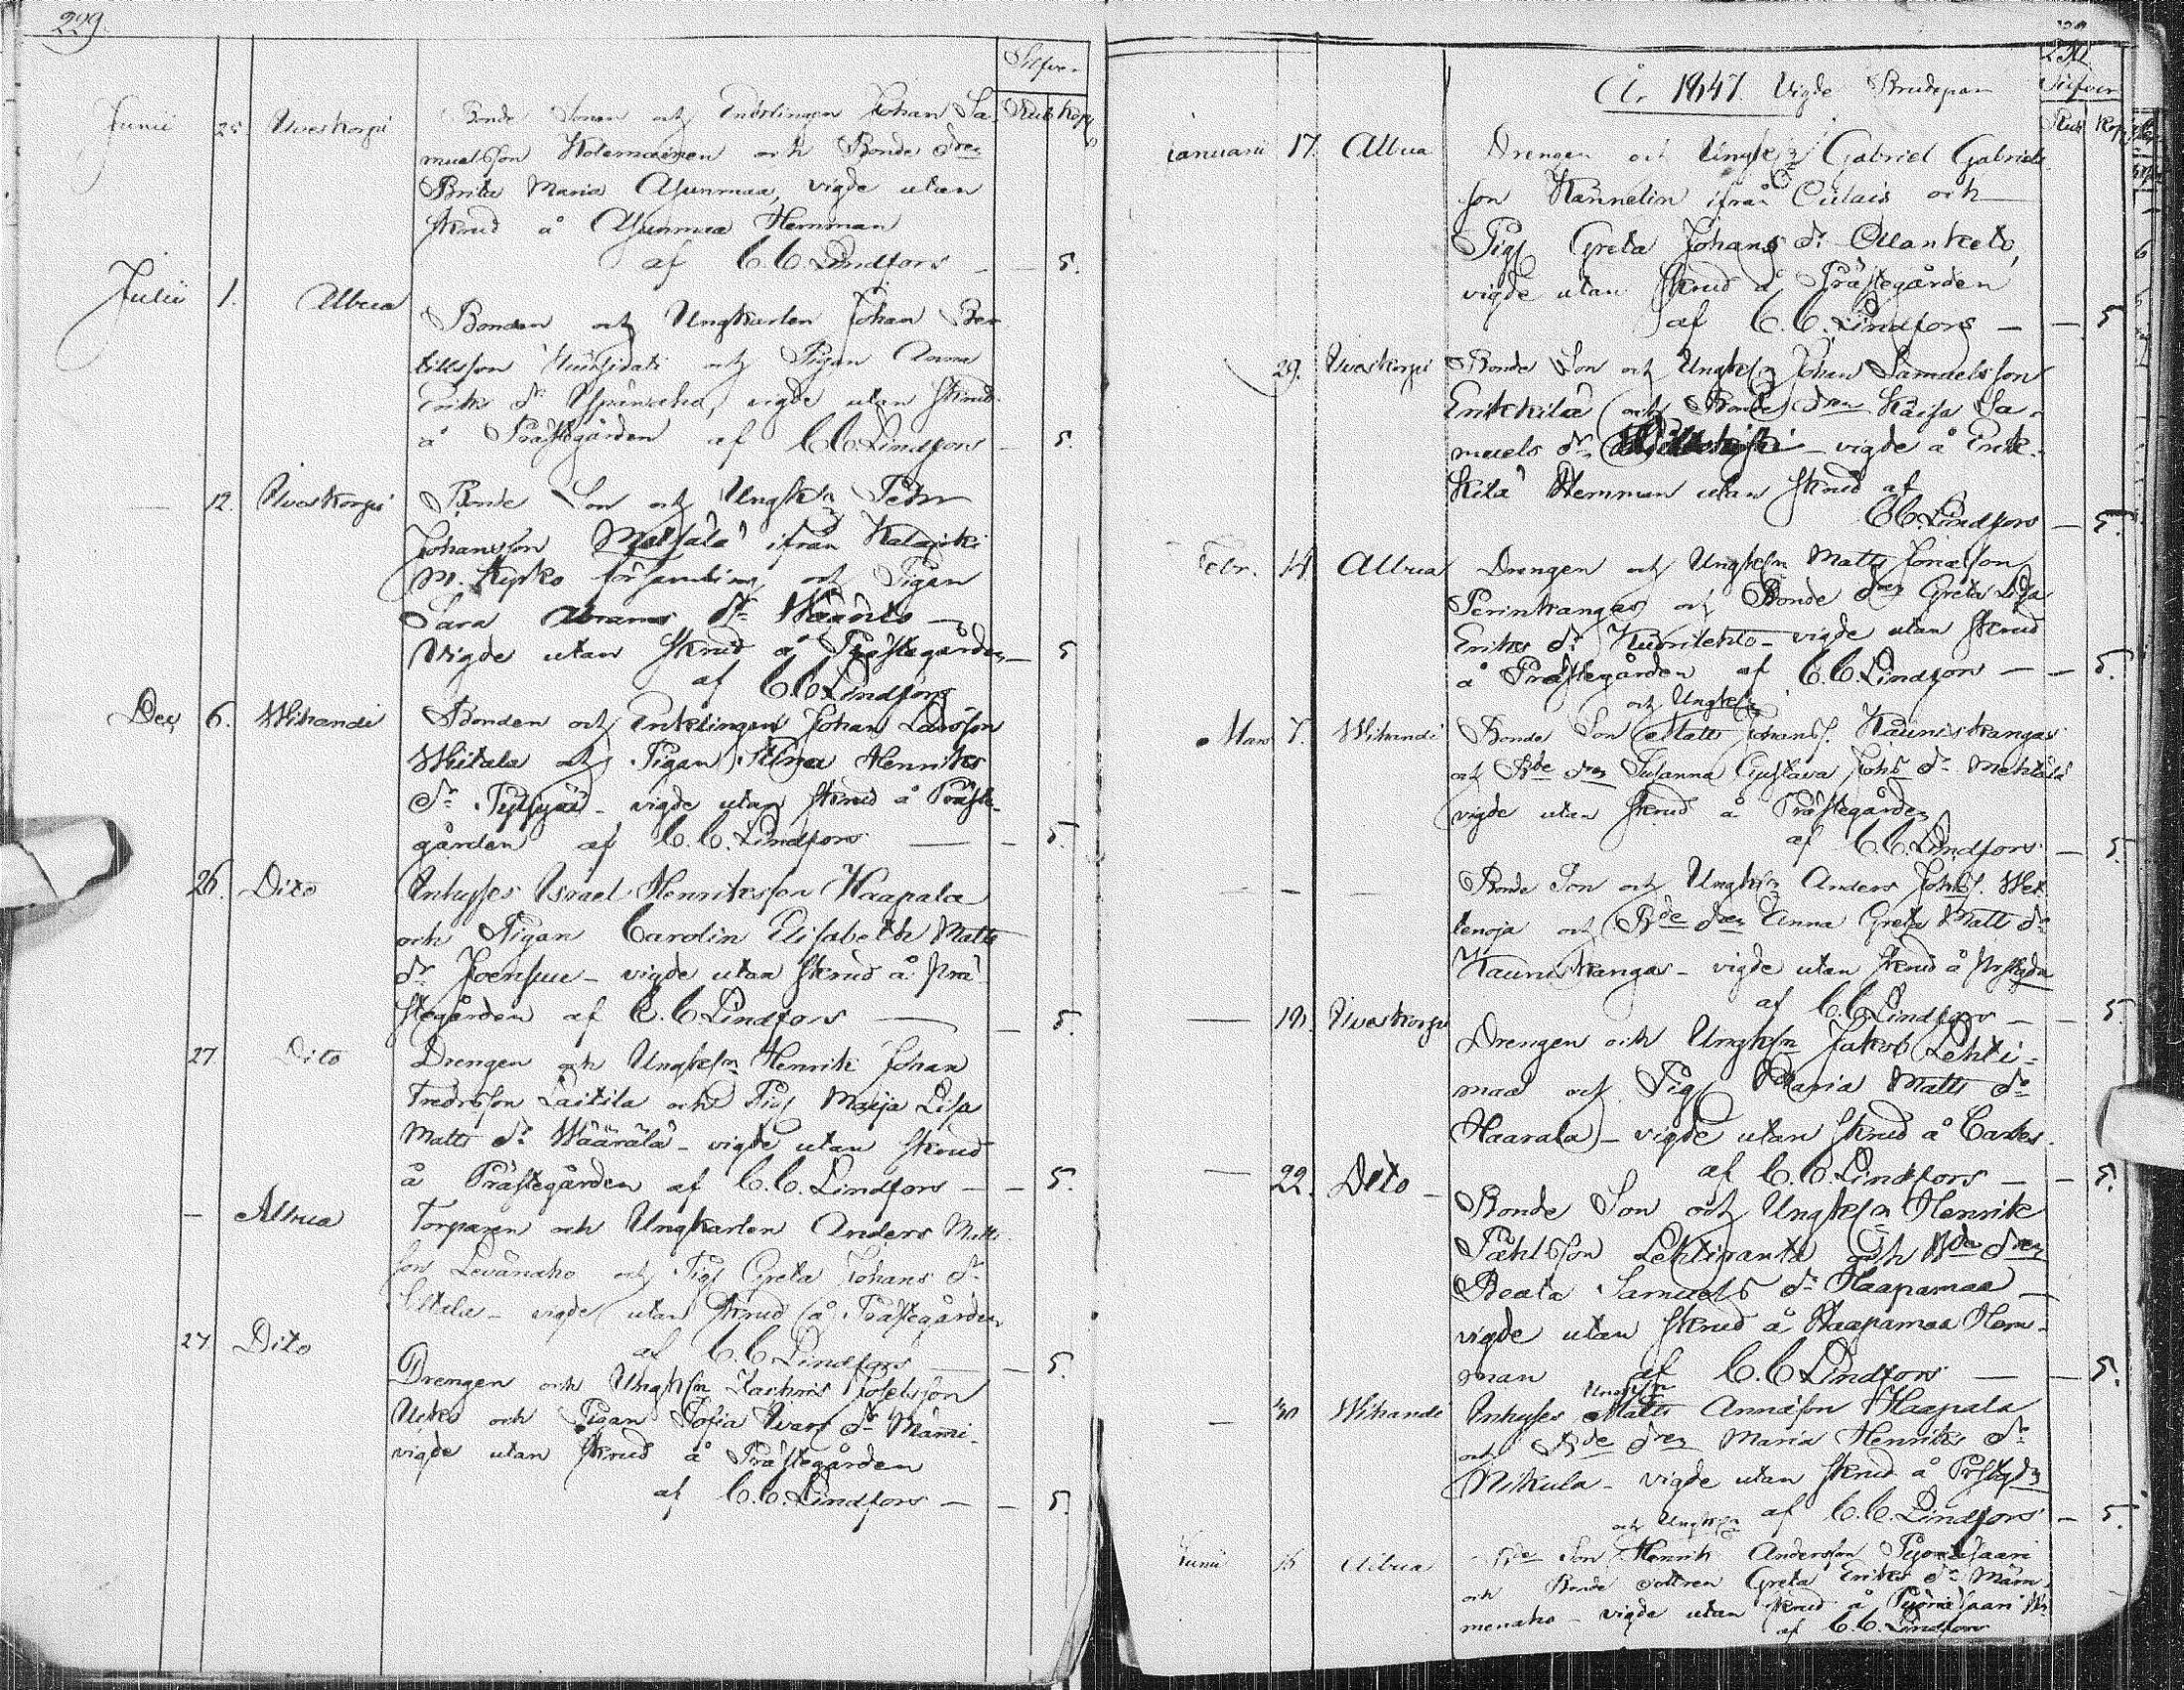 229.
Silfver
Rub Kop
Junii 25 Ylveskorpi Bonde Sonen och Enklingen Johan Sa
muelsson Kotemainen och Bonde dren
Brita Maria Ajunmaa, vigde utan
skrud å Ajunmaa Hemman
af C. C. Lindfors — — 5.
Julii 1. Albua Bonden och Ungkarlen Johan Ber
tillsson och Pigan Anna
Eriks dr vigde utan skrud
å Prästegården af C C Lindfors — 5.
— 12. Ylveskorpi Bonde Son och Ungksn Petter
Johansson Matsala ifrån Kalajoki
M. Kyrko församling och Pigan
Sara Abrams dr Wäänto —
Vigde utan skrud å Prästegården — 5
af C C Lindfors
Dec 6. Wihandi Bonden och Enklingen Johan Larsson
Wiitala och Pigan Stina Henriks
dr vigde utan skrud å Präste
gården af C. C. Lindfors — — 5.
26. Dito Inhyses Israel Henriksson Haapala
och Pigan Carolin Elisabeth Matts
dr Joensuu — vigde utan skrud å Prä
stegården af C. C Lindfors — — 5.
27. Dito Drengen och Ungksn Henrik Johan
Fredrsson Laitila och Pig Maija Lisa
Matts dr Wäärälä — vigde utan skrud
å Prästegården af C. C. Lindfors — — 5.
— Albua Torparen och Ungkarlen Anders Matts
son Levänaho och Pig Greta Johans dr
vigde utan skrud å Prästegården
af C. C Lindfors — — 5.
27 Dito Drengen och Ungksn Zachris Josefsson
och Pigan Sofia Ivars dr Mämi
vigde utan skrud å Prästegården
af C. C. Lindfors — — 5.
230
Silfver
Rub Kop
År 1847. Vigde Brudepar
januarii 17. Albua Drengen och Ungksn Gabriel Gabriels
son Kannelin ifrån Oulais och
Pig Greta Johans dr Ollanketo,
vigde utan skrud å Prästegården
af C. C. Lindfors — — 5
29. Ylveskorpi Bonde Son och Ungksn Johan Samuelsson
Erikkilä och Bonde dren Kaisa Sa-
muels dr vigde å Erik-
kilä Hemman utan skrud af
C C. Lindfors — 5.
Febr. 14 Albua Drengen och Ungksn Matts Jonæson
Perinkangas och Bonde dren Greta Lisa
Eriks dr vigde utan skrud
å Prästegården af C. C. Lindfors — — 5.
och Ungksn
Mars 7. Wihandi Bonde Son Matts Johanss. Kauniskangas
och Bde dren Susanna Gustava Johs dr Mehtälä
vigde utan skrud å Prästegården
af C. C. Lindfors — 5.
— — — Bonde Son och Ungksn Anders Johss. Wet
tenoja och Bde dren Anna Greta Matts dr
Kauniskangas — vigde utan skrud å Prstgdn
af C. C. Lindfors — — 5.
— 19. Ylveskorpi Drengen och Ungksn Jakob Lehti=
maa och Pig Maria Matts dr
Haarala — vigde utan skrud å
af C. C. Lindfors — — 5.
— 22. Dito — Bonde Son och Ungksn Henrik
Påhlsson Lehtiranta och Bde dren
Beata Samuels dr Haapamaa —
vigde utan skrud å Haapamaa Hem-
man af C. C Lindfors — — 5.
Ungksn
— 30 Wihandi Inhyses Matts Annæson Haapala
och Bde dren Maria Henriks dr
Nikula — vigde utan skrud å Prstgdn
af C. C. Lindfors — 5.
och Ungksn
Junii 15 Albua Bde Son Henrik Andersson Pyöriäsaari
och Bonde dottren Greta Eriks dr Mäm
menaho — vigde utan skrud å Pyöriäsaari
af C. C. Lindfors